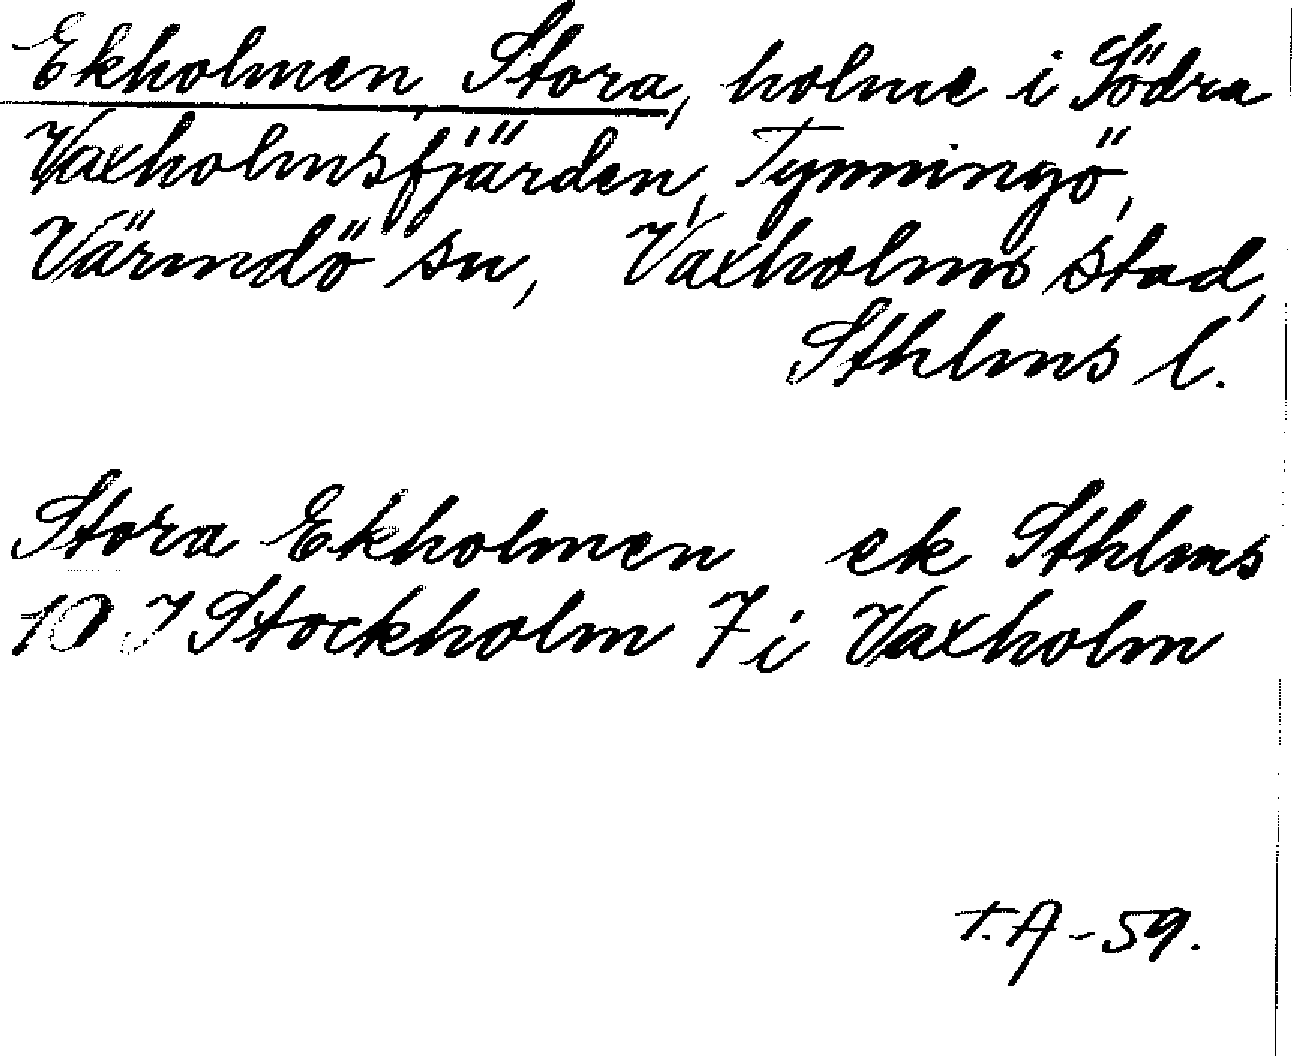 Ekholmen, Stora, holme i Södra
Vaxholmsfjärden, Tynningö,
Värmdö sn, Vaxholms stad,
Sthlms l.
Stora Ekholmen ek Sthlms
10 I Stockholm 7 i Vaxholm
T.A-59.